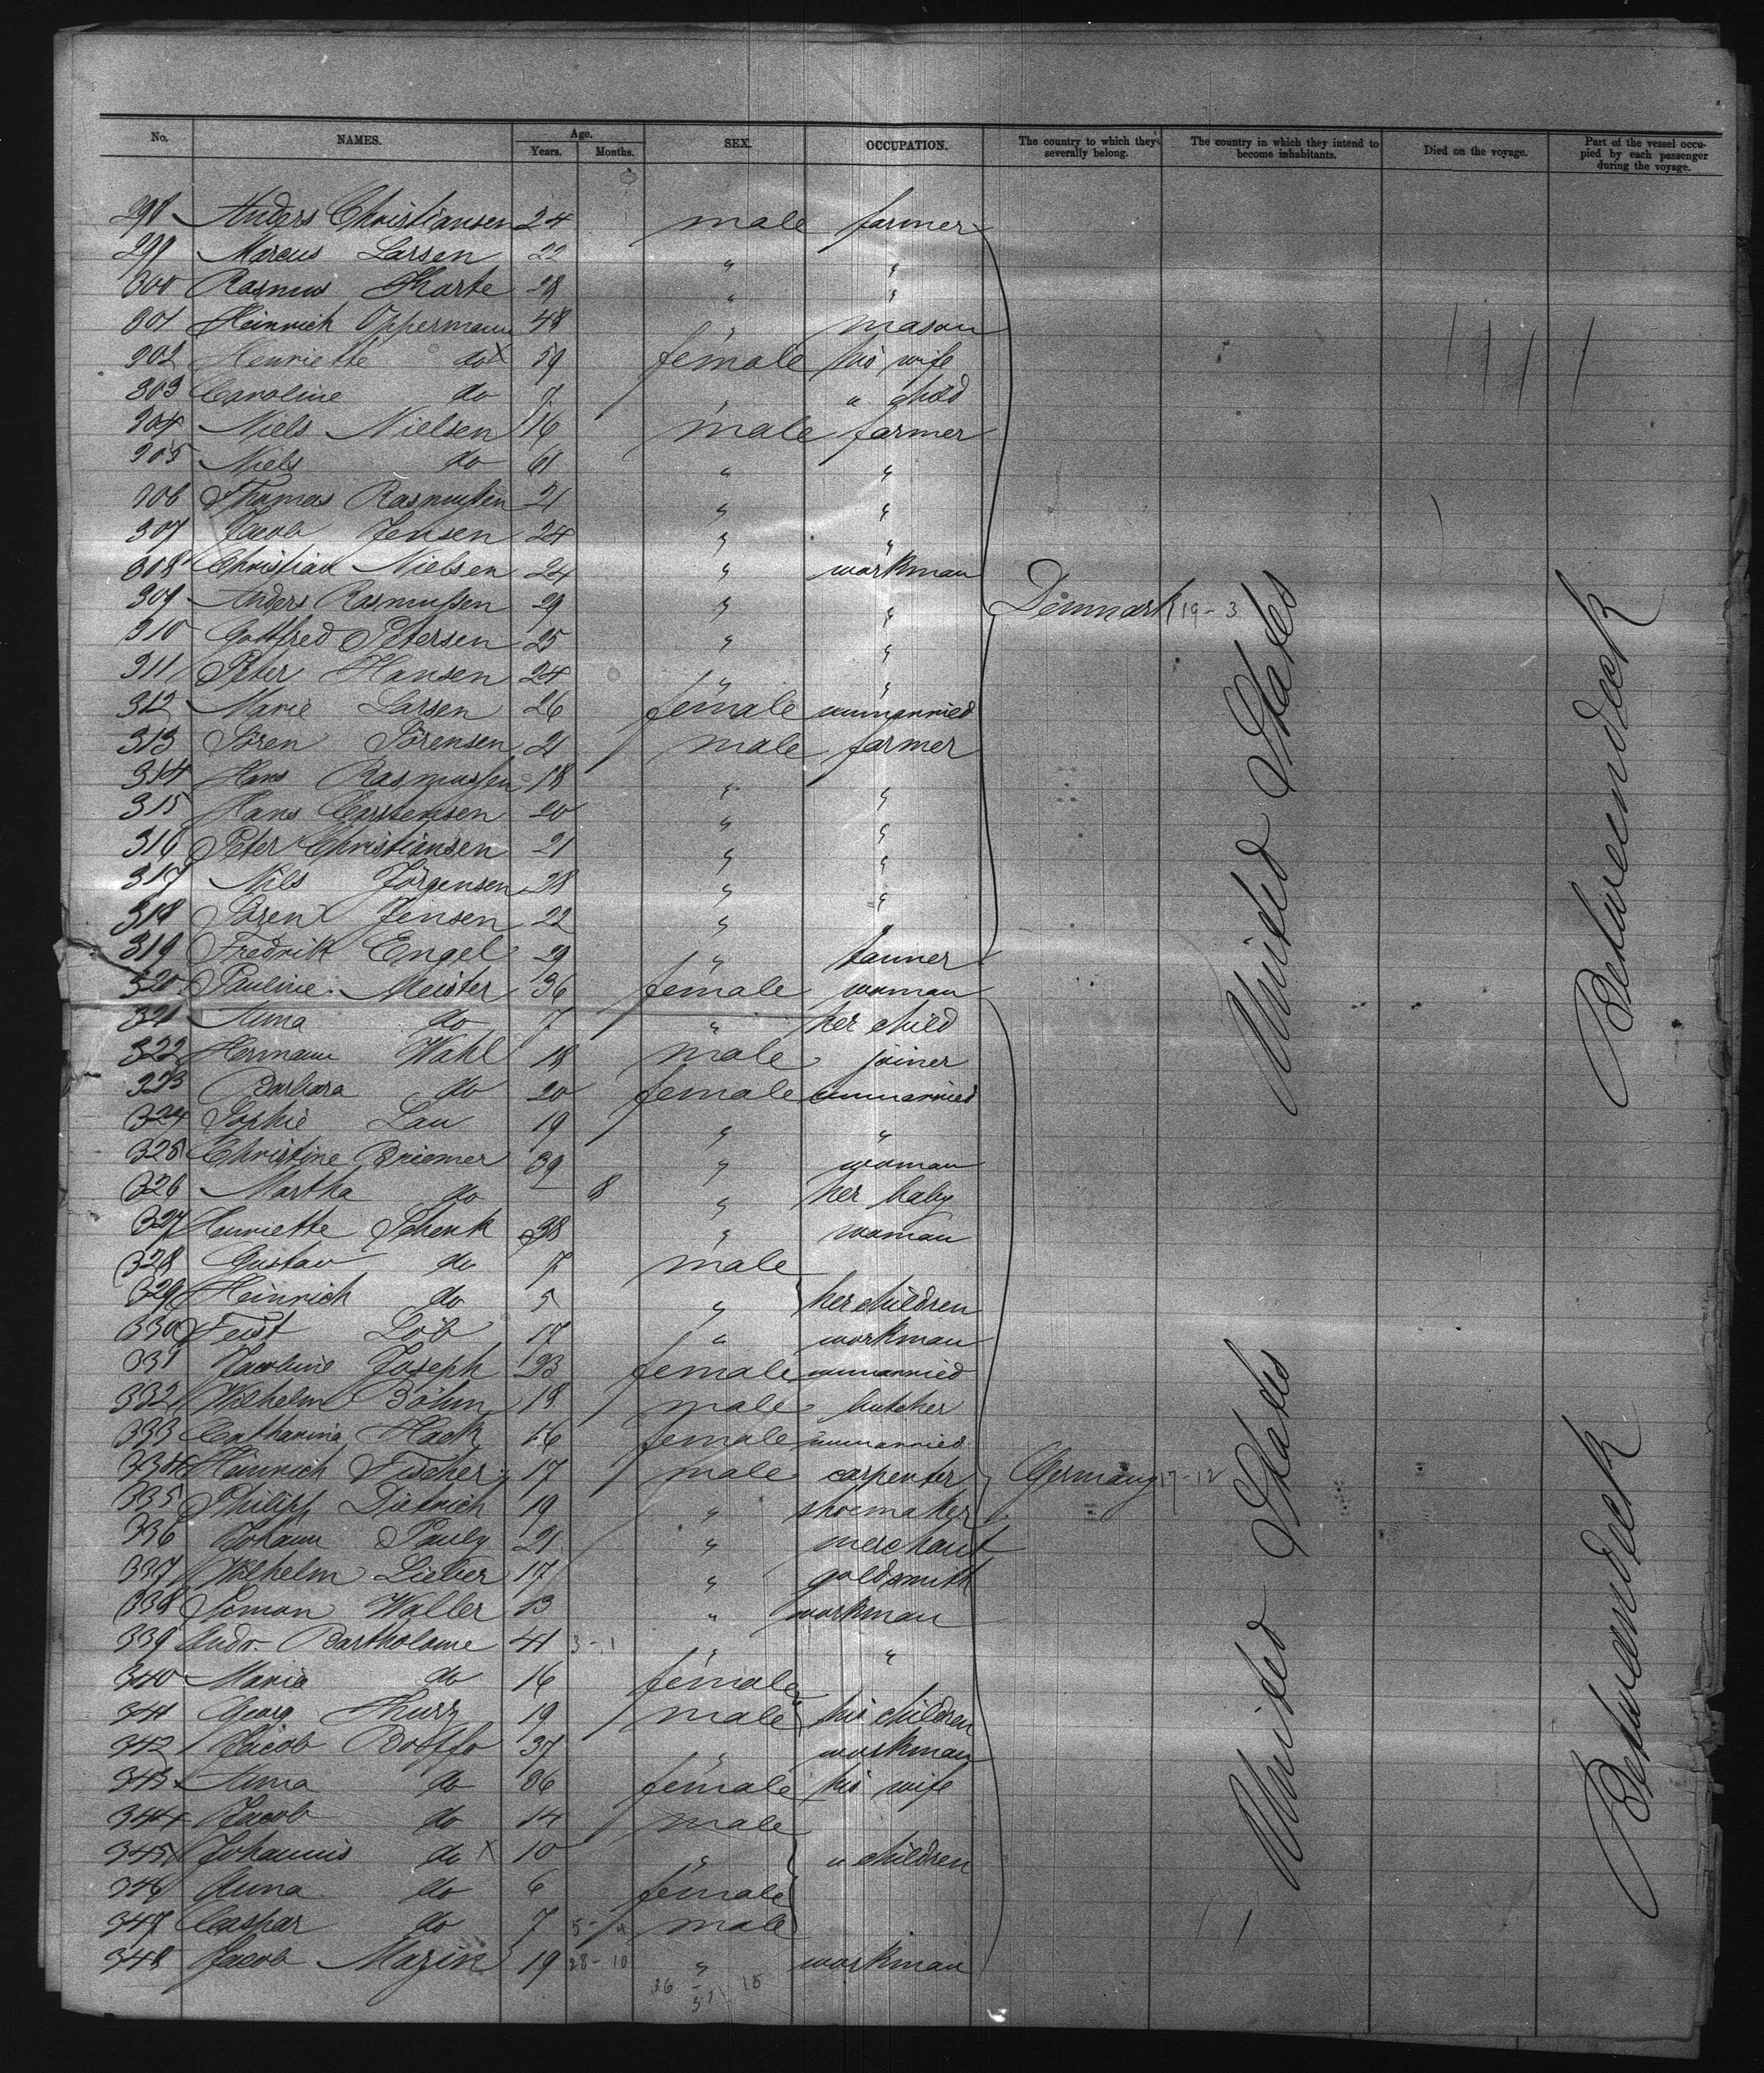 No. NAMES. Age. Years. Months. SEX. OCCUPATION. The country to which they severally belong. The country in which they intend to become inhabitants. Died on the voyage. Part of the vessel occupied by each passenger during the voyage.
298 Anders Christiansen 24 male farmer
299 Marcus Larsen 22 " "
300 Rasmus 28 " "
301 Heinrich Oppermann 48 " mason
302 Henriette do X 59 female his wife
303 Caroline do 7 " " child
304 Niels Nielsen 16 male farmer
305 Niels do 61 " "
306 Thomas Rasmußen 21 " "
307 Jacob Jensen 24 " "
308 Christian Nielsen 24 " workman
309 Anders Rasmußen 29 " " Denmark 19-3
310 Gottfred Petersen 25 " "
311 Peter Hansen 24 " "
312 Marie Larsen 26 female unmarried
313 Sören Sörensen 21 male farmer
314 Hans Rasmußen 18 " "
315 Hans Carstensen 20 " "
316 Peter Christiansen 21 " "
317 Nils Jörgensen 28 " "
318 Sören Jensen 22 " "
319 Fredrik Engel 29 " tanner
320 Pauline Meister 36 female woman
321 Anna do 7 " her child
322 Hermann Wahl 18 male joiner
323 Barbara do 20 female unmarried
324 Sophie Lau 19 " "
325 Christine Briemer 39 " woman
326 Martha do 8 " her baby
327 Henriette Schenk 38 " woman
328 Gustav do 7 male
329 Heinrich do 5 " her children
330 Feist Löb 17 " workman
331 Jacobine Joseph 23 female unmarried
332 Wilhelm Böhm 18 male butcher
333 Catharina Hack 16 female unmarried
334 Heinrich Fischer 17 male carpenter Germany 17-12
335 Philipp Dietrich 19 " shoemaker
336 Johann Pauly 21 " merchant
337 Wilhelm Lieber 17 " goldsmith
338 Simon Waller 13 " workman
339 Andr. Bartholome 41 3-1 " "
340 Maria do 16 female
341 Georg 19 male his children
342 Jacob 37 " workman
343 Anna do 36 female his wife
344 Jacob do 14 male
345 Johannis do X 10 " " children
346 Anna do 6 female
347 Caspar do 7 male
348 Jacob Mazin 19 28-10 " workman
36 - 15
51
United States
Betweendeck
United States
Betweendeck